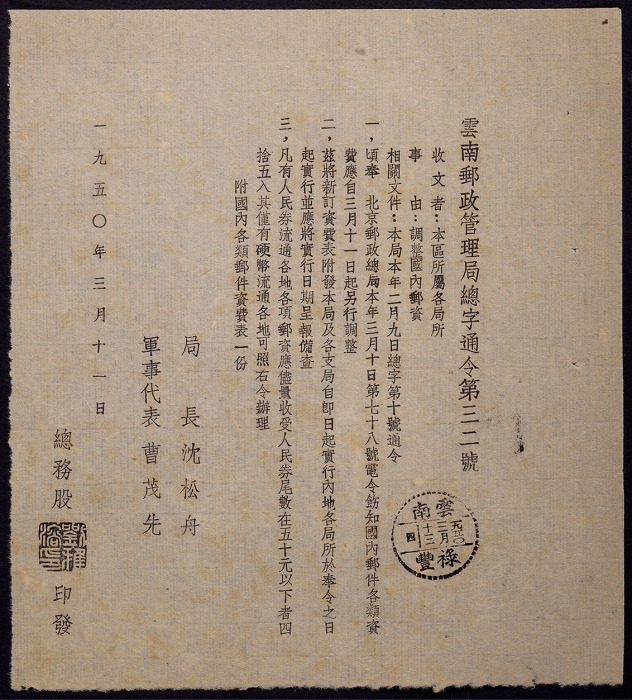 雲南郵政管理局總字通令第三二號
收文者：本區所屬各局所
事由：調整國內郵資
相關文件：本局本年二月九日總字第十號通令
一，頃奉 北京郵政總局本年三月十日第七十八號電令飭知國內郵件各類資
費應自三月十一日起另行調整
二，茲將新訂資費表附發本局及各支局自卽日起實行內地各局所於奉令之日
起實行並應將實行日期呈報備查
三，凡有人民券流通各地各項郵資應儘量收受人民券尾數在五十元以下者四
捨五入其僅有硬幣流通各地可照右令辦理
附國內各類郵件資費表一份
局長沈松舟
軍事代表曹茂先
一九五〇年三月十一日
總務股
印發
雲南
一九五〇
三月
十三
四
祿豐